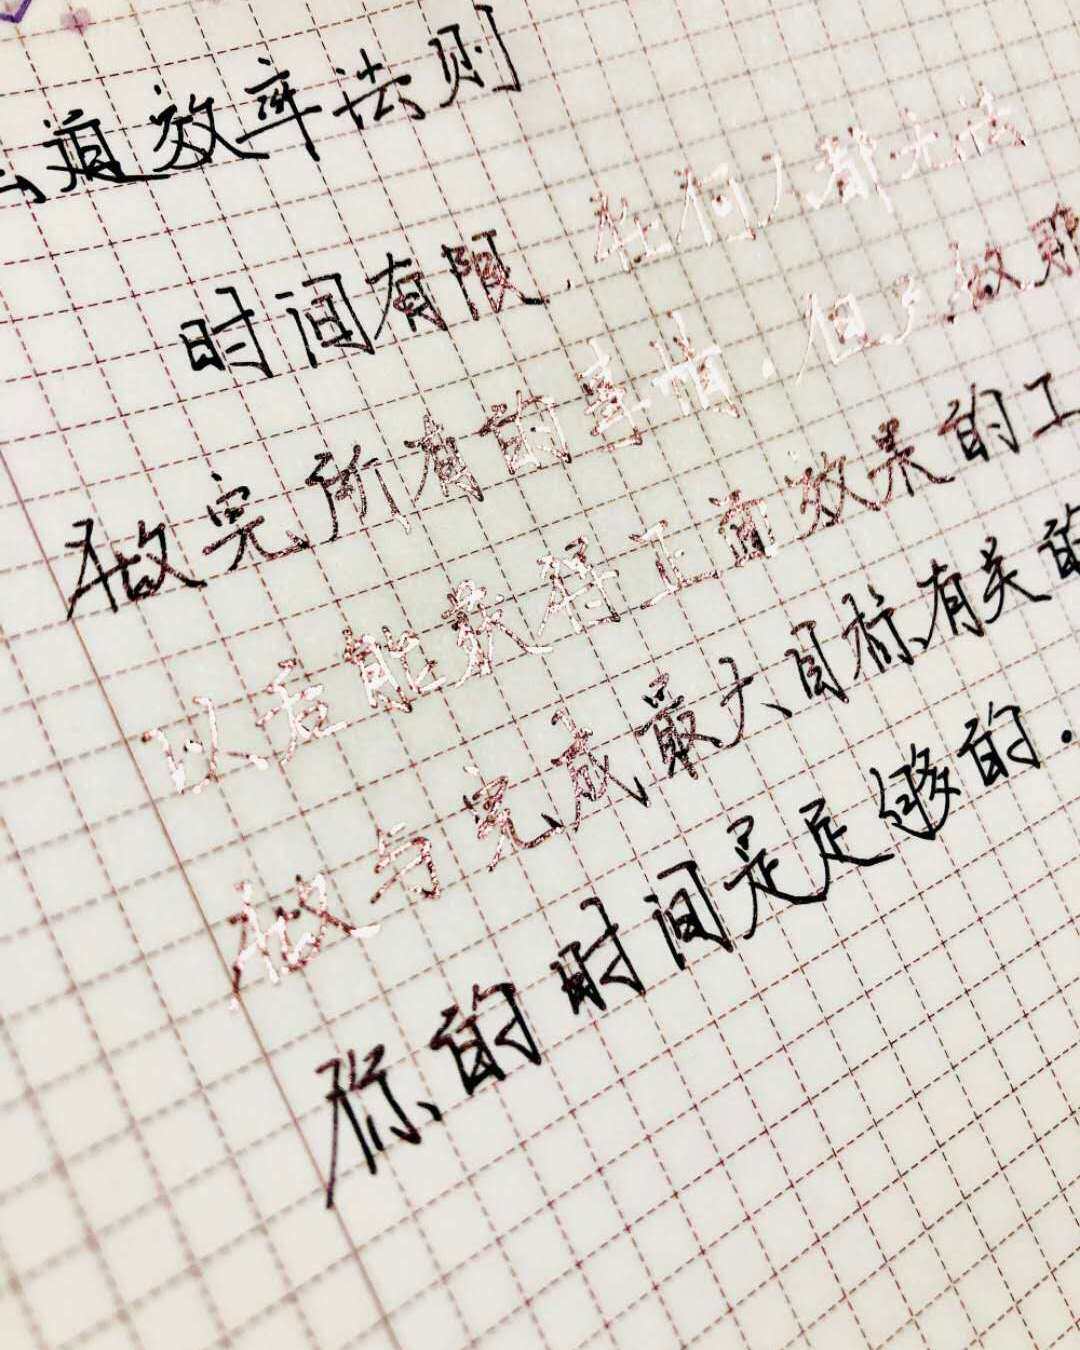 效率法则
时间有限.任何人都无法
做完所有的事情.但是做那
以后能获得正面效果的工
做与完成最大目标有关的
你的时间是足够的.